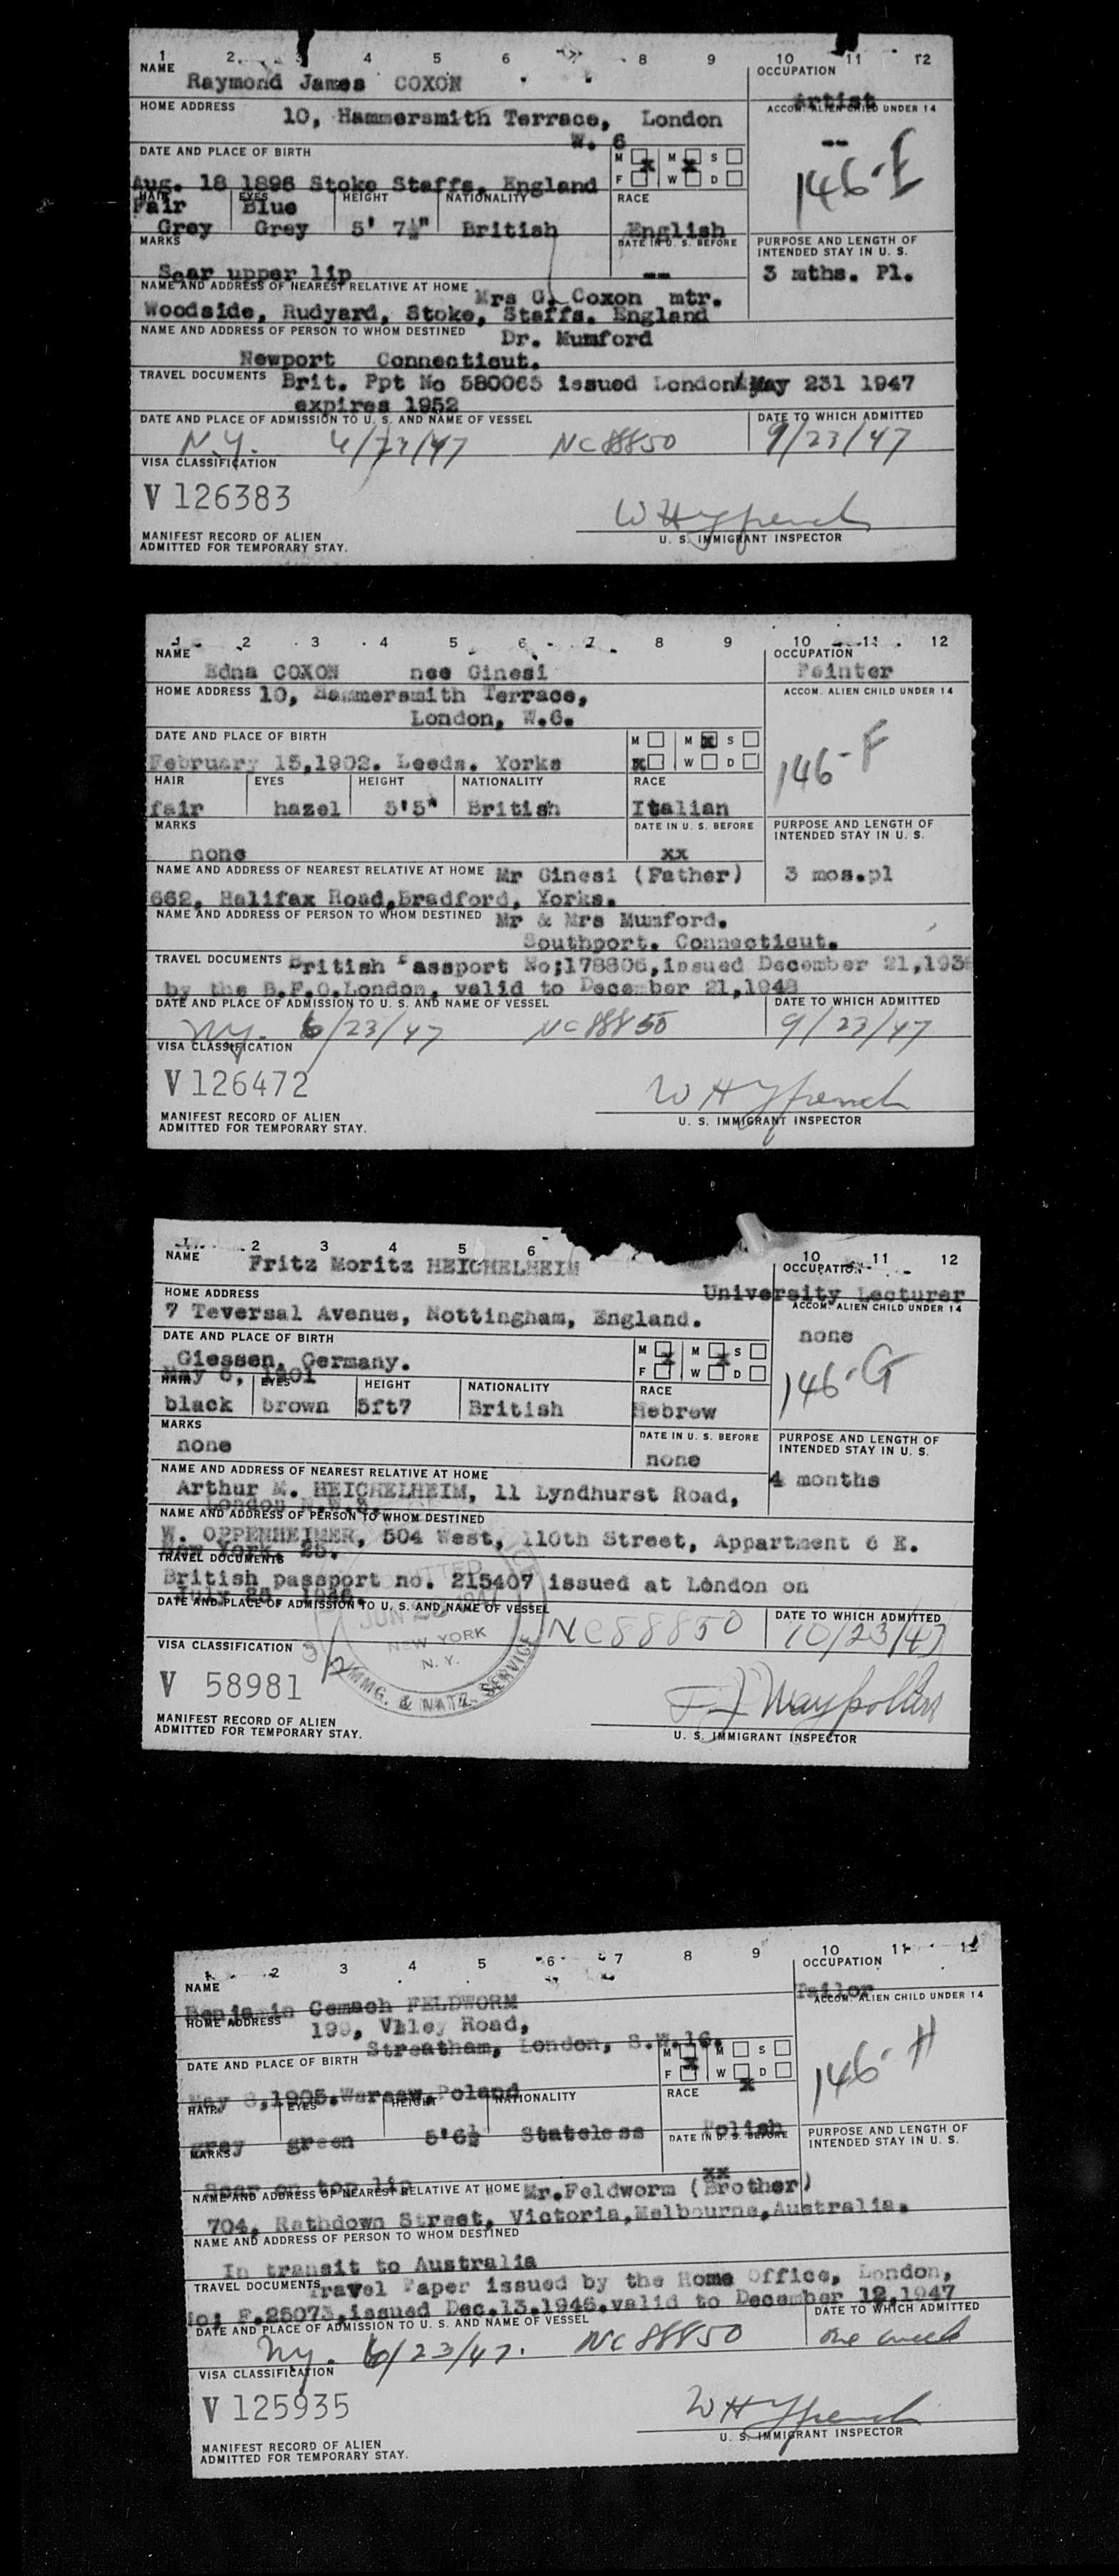 1 2 3 4 5 6 7 8 9 10 11 12
NAME OCCUPATION
Raymond James COXON Artist
HOME ADDRESS ACCOM. ALIEN CHILD UNDER 14
10, Hammersmith Terrace, London --
W. 6
146-E
DATE AND PLACE OF BIRTH M M S
Aug. 18 1896 Stoke Staffs. England F W D
HAIR EYES HEIGHT NATIONALITY RACE
Fair Blue
Grey Grey 5' 7½" British English
MARKS DATE IN U. S. BEFORE PURPOSE AND LENGTH OF
INTENDED STAY IN U. S.
Scar upper lip -- 3 mths. Pl.
NAME AND ADDRESS OF NEAREST RELATIVE AT HOME Mrs G. Coxon mtr.
Woodside, Rudyard, Stoke, Staffs. England
NAME AND ADDRESS OF PERSON TO WHOM DESTINED Dr. Mumford
Newport Connecticut.
TRAVEL DOCUMENTS Brit. Ppt No 580065 issued London May 231 1947
expires 1952
DATE AND PLACE OF ADMISSION TO U. S. AND NAME OF VESSEL DATE TO WHICH ADMITTED
N.Y. 6/23/47 NC88850 9/23/47
VISA CLASSIFICATION
V 126383
W H Y French
MANIFEST RECORD OF ALIEN U. S. IMMIGRANT INSPECTOR
ADMITTED FOR TEMPORARY STAY.
1 2 3 4 5 6 7 8 9 10 11 12
NAME OCCUPATION
Edna COXON nee Ginesi Painter
HOME ADDRESS 10, Hammersmith Terrace, ACCOM. ALIEN CHILD UNDER 14
London, W.6.
146-F
DATE AND PLACE OF BIRTH M M S
February 15,1902. Leeds. Yorks F W D
HAIR EYES HEIGHT NATIONALITY RACE
fair hazel 5'5" British Italian
MARKS DATE IN U. S. BEFORE PURPOSE AND LENGTH OF
INTENDED STAY IN U. S.
none xx
NAME AND ADDRESS OF NEAREST RELATIVE AT HOME Mr Ginesi (Father) 3 mos.pl
662, Halifax Road,Bradford, Yorks.
NAME AND ADDRESS OF PERSON TO WHOM DESTINED Mr & Mrs Mumford.
Southport. Connecticut.
TRAVEL DOCUMENTS British Passport No;178806,issued December 21,193
by the B.F.O.London, valid to December 21,1948
DATE AND PLACE OF ADMISSION TO U. S. AND NAME OF VESSEL DATE TO WHICH ADMITTED
NY. 6/23/47 NC88850 9/23/47
VISA CLASSIFICATION
V 126472
W H Y French
MANIFEST RECORD OF ALIEN U. S. IMMIGRANT INSPECTOR
ADMITTED FOR TEMPORARY STAY.
1 2 3 4 5 6 10 11 12
NAME OCCUPATION
Fritz Moritz HEICHELHEIM
HOME ADDRESS University Lecturer
7 Teversal Avenue, Nottingham, England. ACCOM. ALIEN CHILD UNDER 14
none
DATE AND PLACE OF BIRTH M M S
Giessen, Germany. F W D
May 6, 1901 146-G
HAIR EYES HEIGHT NATIONALITY RACE
black brown 5ft7 British Hebrew
MARKS DATE IN U. S. BEFORE PURPOSE AND LENGTH OF
INTENDED STAY IN U. S.
none none
NAME AND ADDRESS OF NEAREST RELATIVE AT HOME 4 months
Arthur M. HEICHELHEIM, 11 Lyndhurst Road,
London N.W.3.
NAME AND ADDRESS OF PERSON TO WHOM DESTINED
W. OPPENHEIMER, 504 West, 110th Street, Appartment 6 E.
New York. 25.
TRAVEL DOCUMENTS
British passport no. 215407 issued at London on
July 26, 1946.
DATE AND PLACE OF ADMISSION TO U. S. AND NAME OF VESSEL DATE TO WHICH ADMITTED
ADMITTED JUN 1947 NEW YORK N. Y. IMMG. & NATZ. SERVICE
NC88850 10/23/47
VISA CLASSIFICATION
V 58981
MANIFEST RECORD OF ALIEN U. S. IMMIGRANT INSPECTOR
ADMITTED FOR TEMPORARY STAY.
1 2 3 4 5 6 7 8 9 10 11 12
NAME OCCUPATION
Benjamin Cemach FELDWORM Tailor
HOME ADDRESS 199, Vlley Road, ACCOM. ALIEN CHILD UNDER 14
Streatham, London, S.W.16.
146-H
DATE AND PLACE OF BIRTH M M S
May 8,1905.Warsaw.Poland F W D
HAIR EYES HEIGHT NATIONALITY RACE
grey green 5'6½ Stateless Polish
MARKS DATE IN U. S. BEFORE PURPOSE AND LENGTH OF
INTENDED STAY IN U. S.
Scar on top lip xx
NAME AND ADDRESS OF NEAREST RELATIVE AT HOME Mr.Feldworm (Brother)
704, Rathdown Street, Victoria,Melbourne,Australia.
NAME AND ADDRESS OF PERSON TO WHOM DESTINED
In transit to Australia
TRAVEL DOCUMENTS Travel Paper issued by the Home Office, London,
No; F.25073,issued Dec.13.1946.valid to December 12,1947
DATE AND PLACE OF ADMISSION TO U. S. AND NAME OF VESSEL DATE TO WHICH ADMITTED
NY. 6/23/47. NC88850 one week
VISA CLASSIFICATION
V 125935
W H Y French
MANIFEST RECORD OF ALIEN U. S. IMMIGRANT INSPECTOR
ADMITTED FOR TEMPORARY STAY.